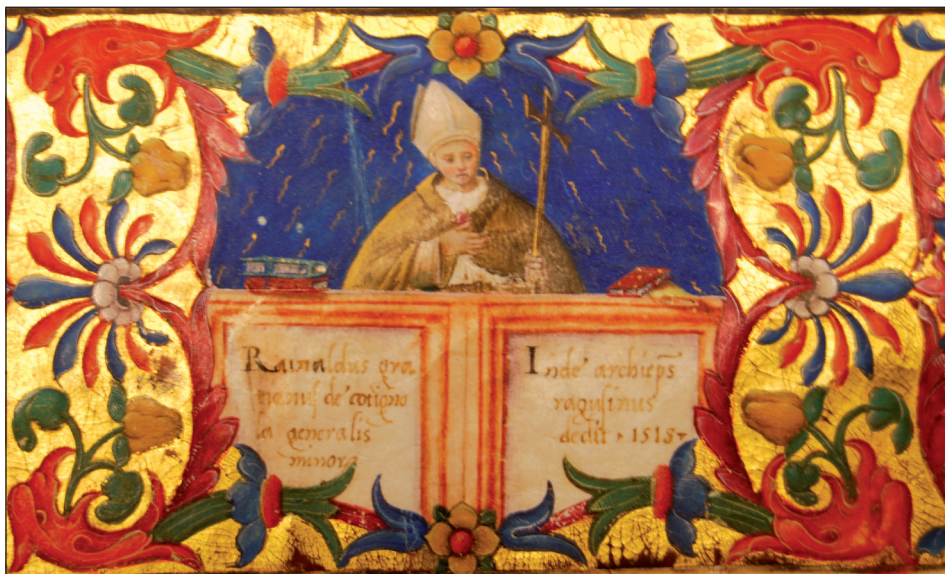 Rainaldus gra
nanus de cotigno
la generalis
minorꝝ
Inde archiep̄s
ragusinus
dedit · 1518 ·